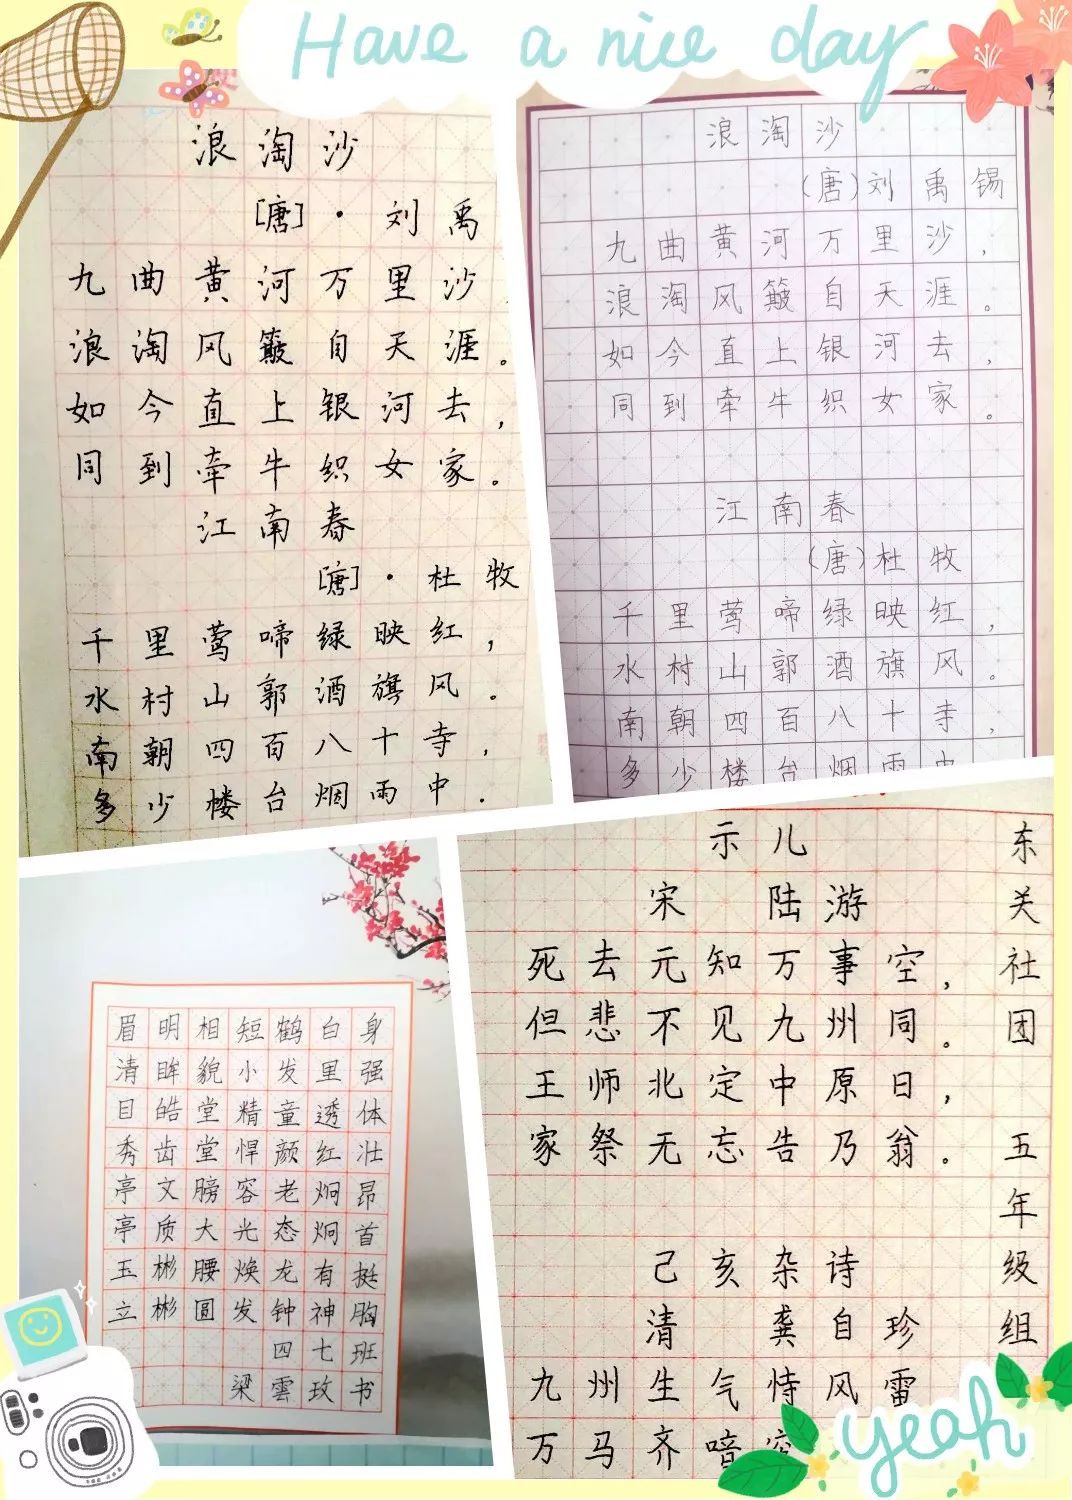 Have a nice day
浪淘沙
[唐]·刘禹
九曲黄河万里沙,
浪淘风簸自天涯。
如今直上银河去,
同到牵牛织女家。
江南春
[唐]·杜牧
千里莺啼绿映红,
水村山郭酒旗风。
南朝四百八十寺,
多少楼台烟雨中.
浪淘沙
(唐)刘禹锡
九曲黄河万里沙,
浪淘风簸自天涯。
如今直上银河去,
同到牵牛织女家。
江南春
(唐)杜牧
千里莺啼绿映红,
水村山郭酒旗风。
南朝四百八十寺,
多少楼台烟雨中
身强体壮昂首挺胸
白里透红炯炯有神
鹤发童颜老态龙钟
短小精悍容光焕发
相貌堂堂膀大腰圆
明眸皓齿文质彬彬
眉清目秀亭亭玉立
四七班
梁雲玫书
东关社团 五年级组
示儿
宋 陆游
死去元知万事空,
但悲不见九州同。
王师北定中原日,
家祭无忘告乃翁。
己亥杂诗
清 龚自珍
九州生气恃风雷
万马齐喑
yeah